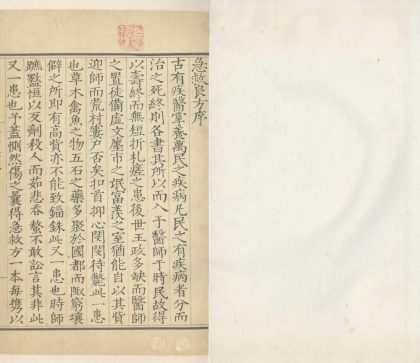 急救良方序
古有疾醫掌養萬民之疾病凡民之有疾病者分而
治之死終則各書其所以而入于醫師于時民故得
以壽終而無短折札瘥之患後世王政多缺而醫師
之置徒備虛文廛市之氓富羨之室猶能自以其貲
迎師而荒村窶戶否矣扣首抑心閔閔待斃此一患
也草木禽魚之物五石之藥多聚於國都而陬窮壤
僻之所即有高貲亦不能致錙銖此又一患也時師
盭恒以反劑殺人而茹悲吞螫不敢訟言其非此
又一患也予蓋惻然傷之曩得急救方一本每攜以